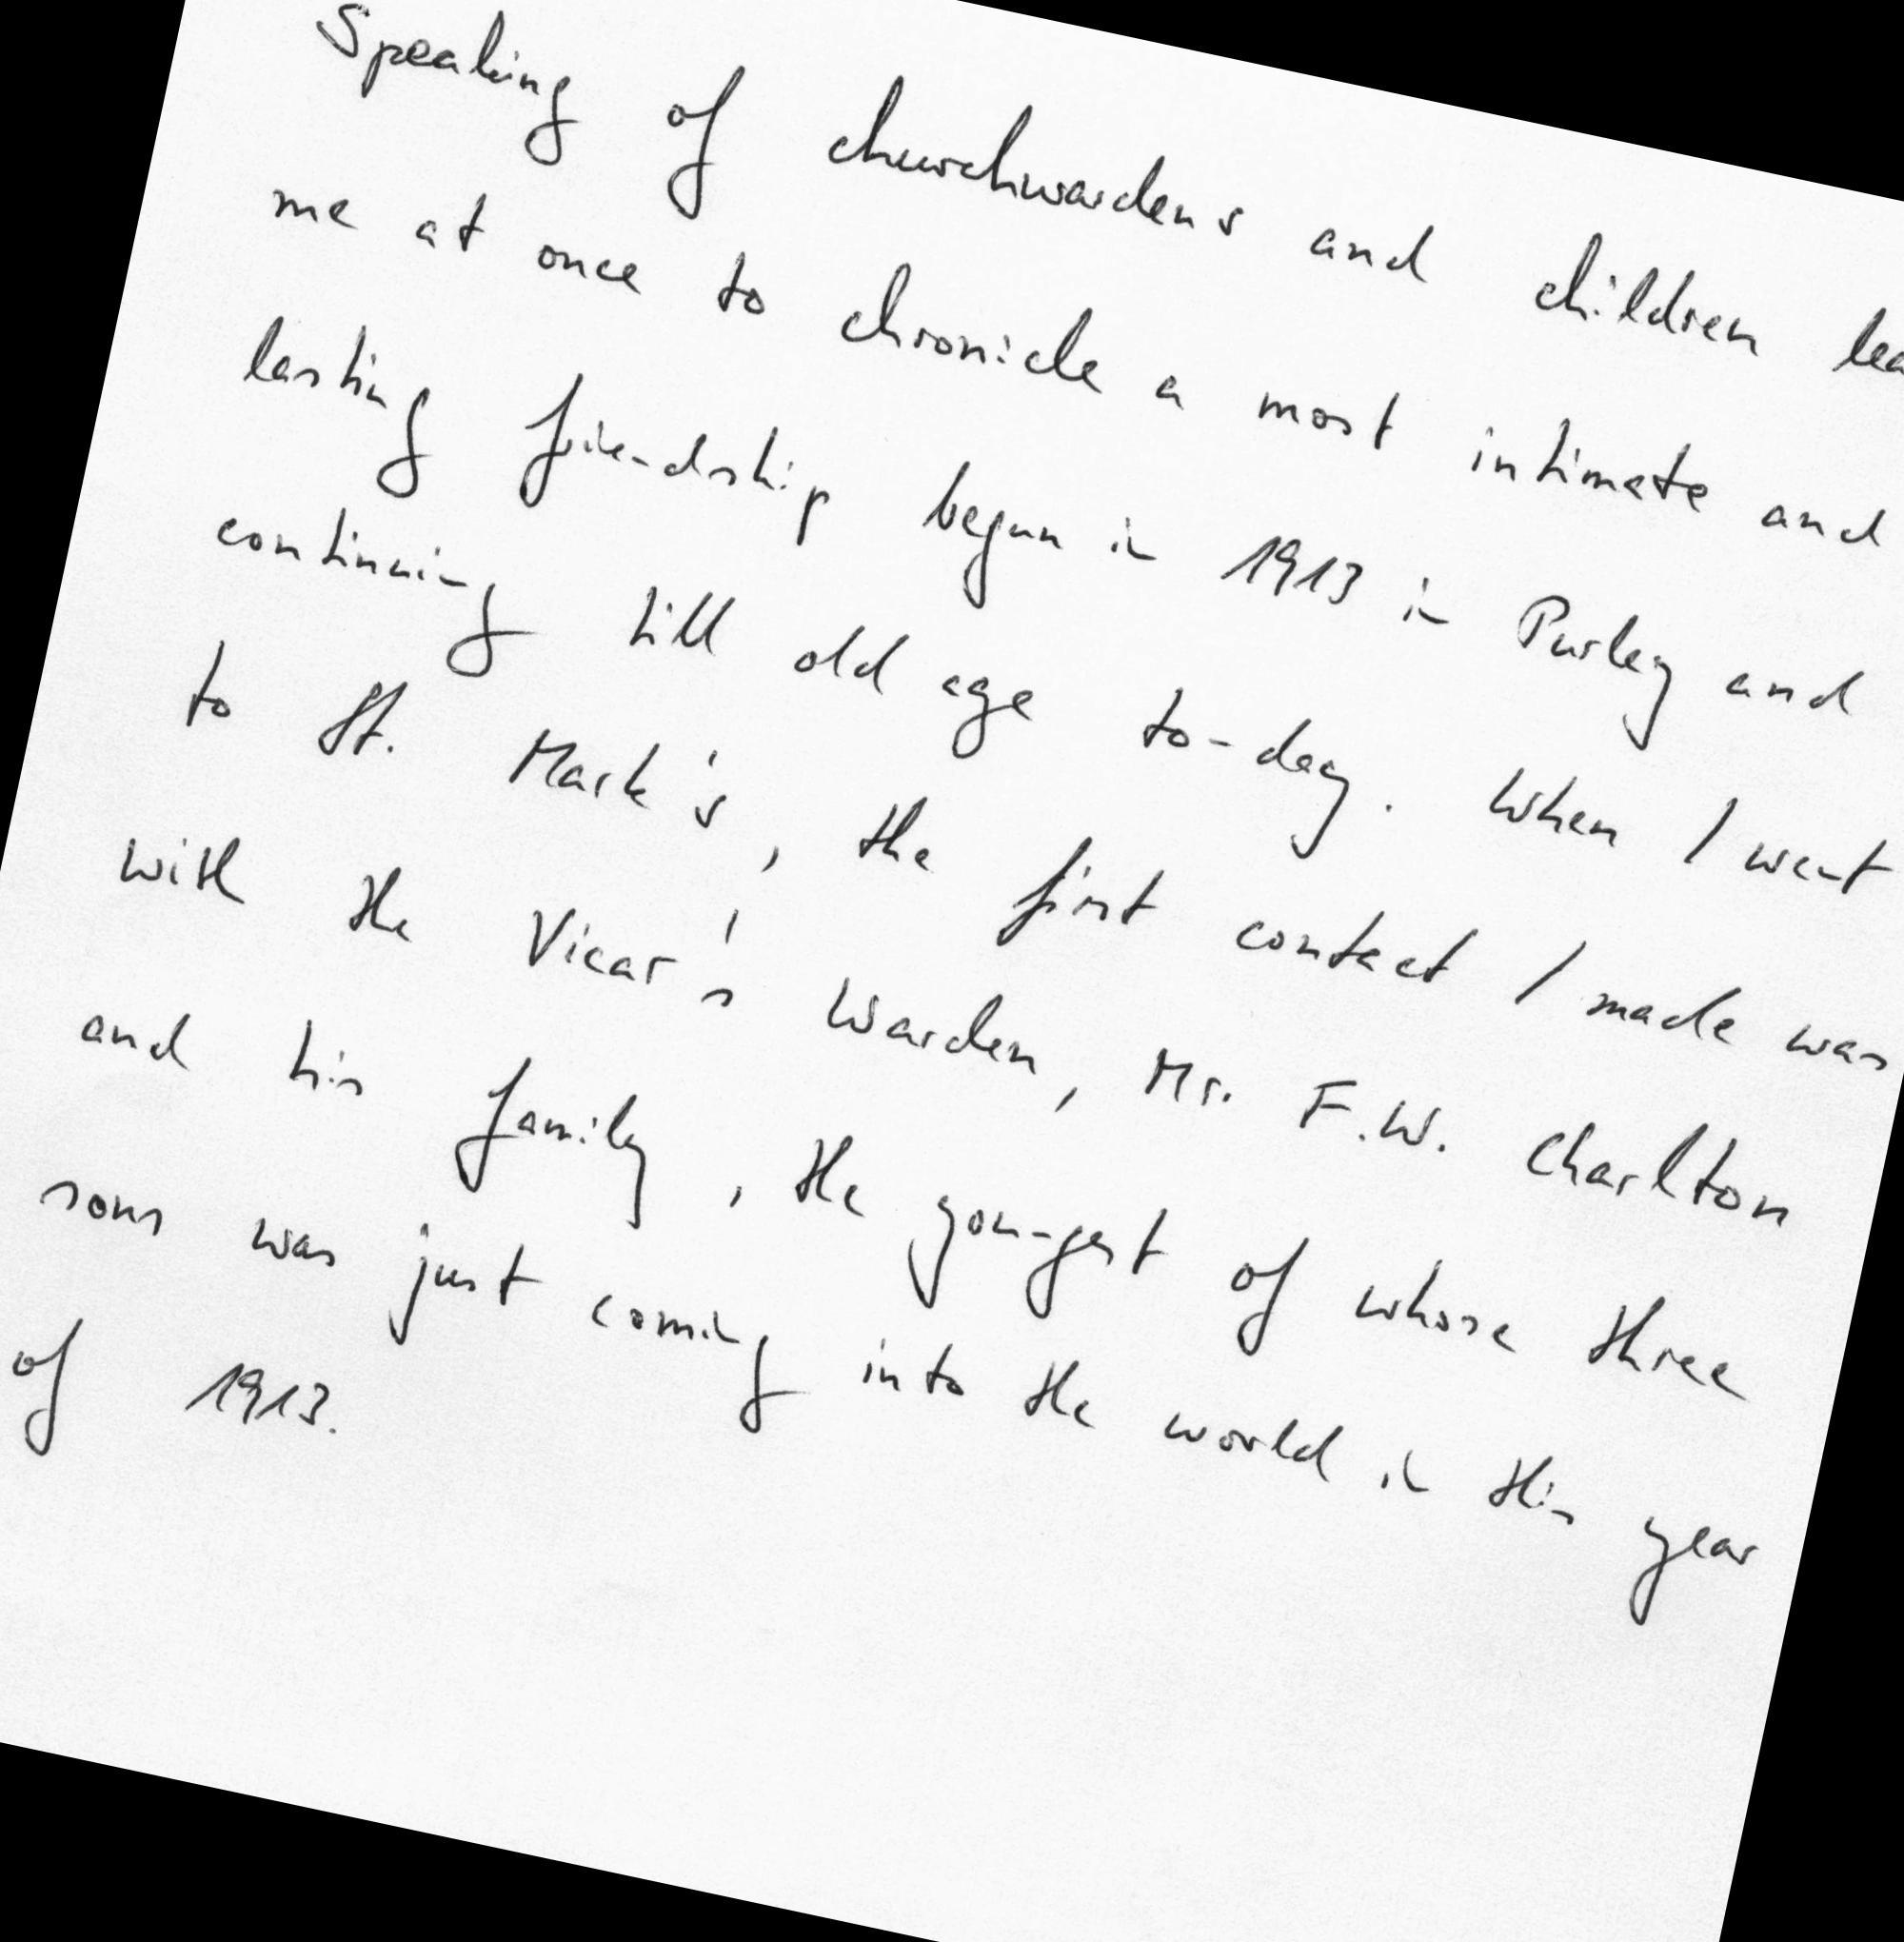 Speaking of churchwardens and children
me at once to chronicle a most intimate and
lasting friendship begun in 1913 in Purley and
continuing till old age to-day. When I went
to St. Mark's, the first contact I made was
with the Vicar's Warden, Mr. F.W. Charlton
and his family, the youngest of whose three
sons was just coming into the world in this year
of 1913.